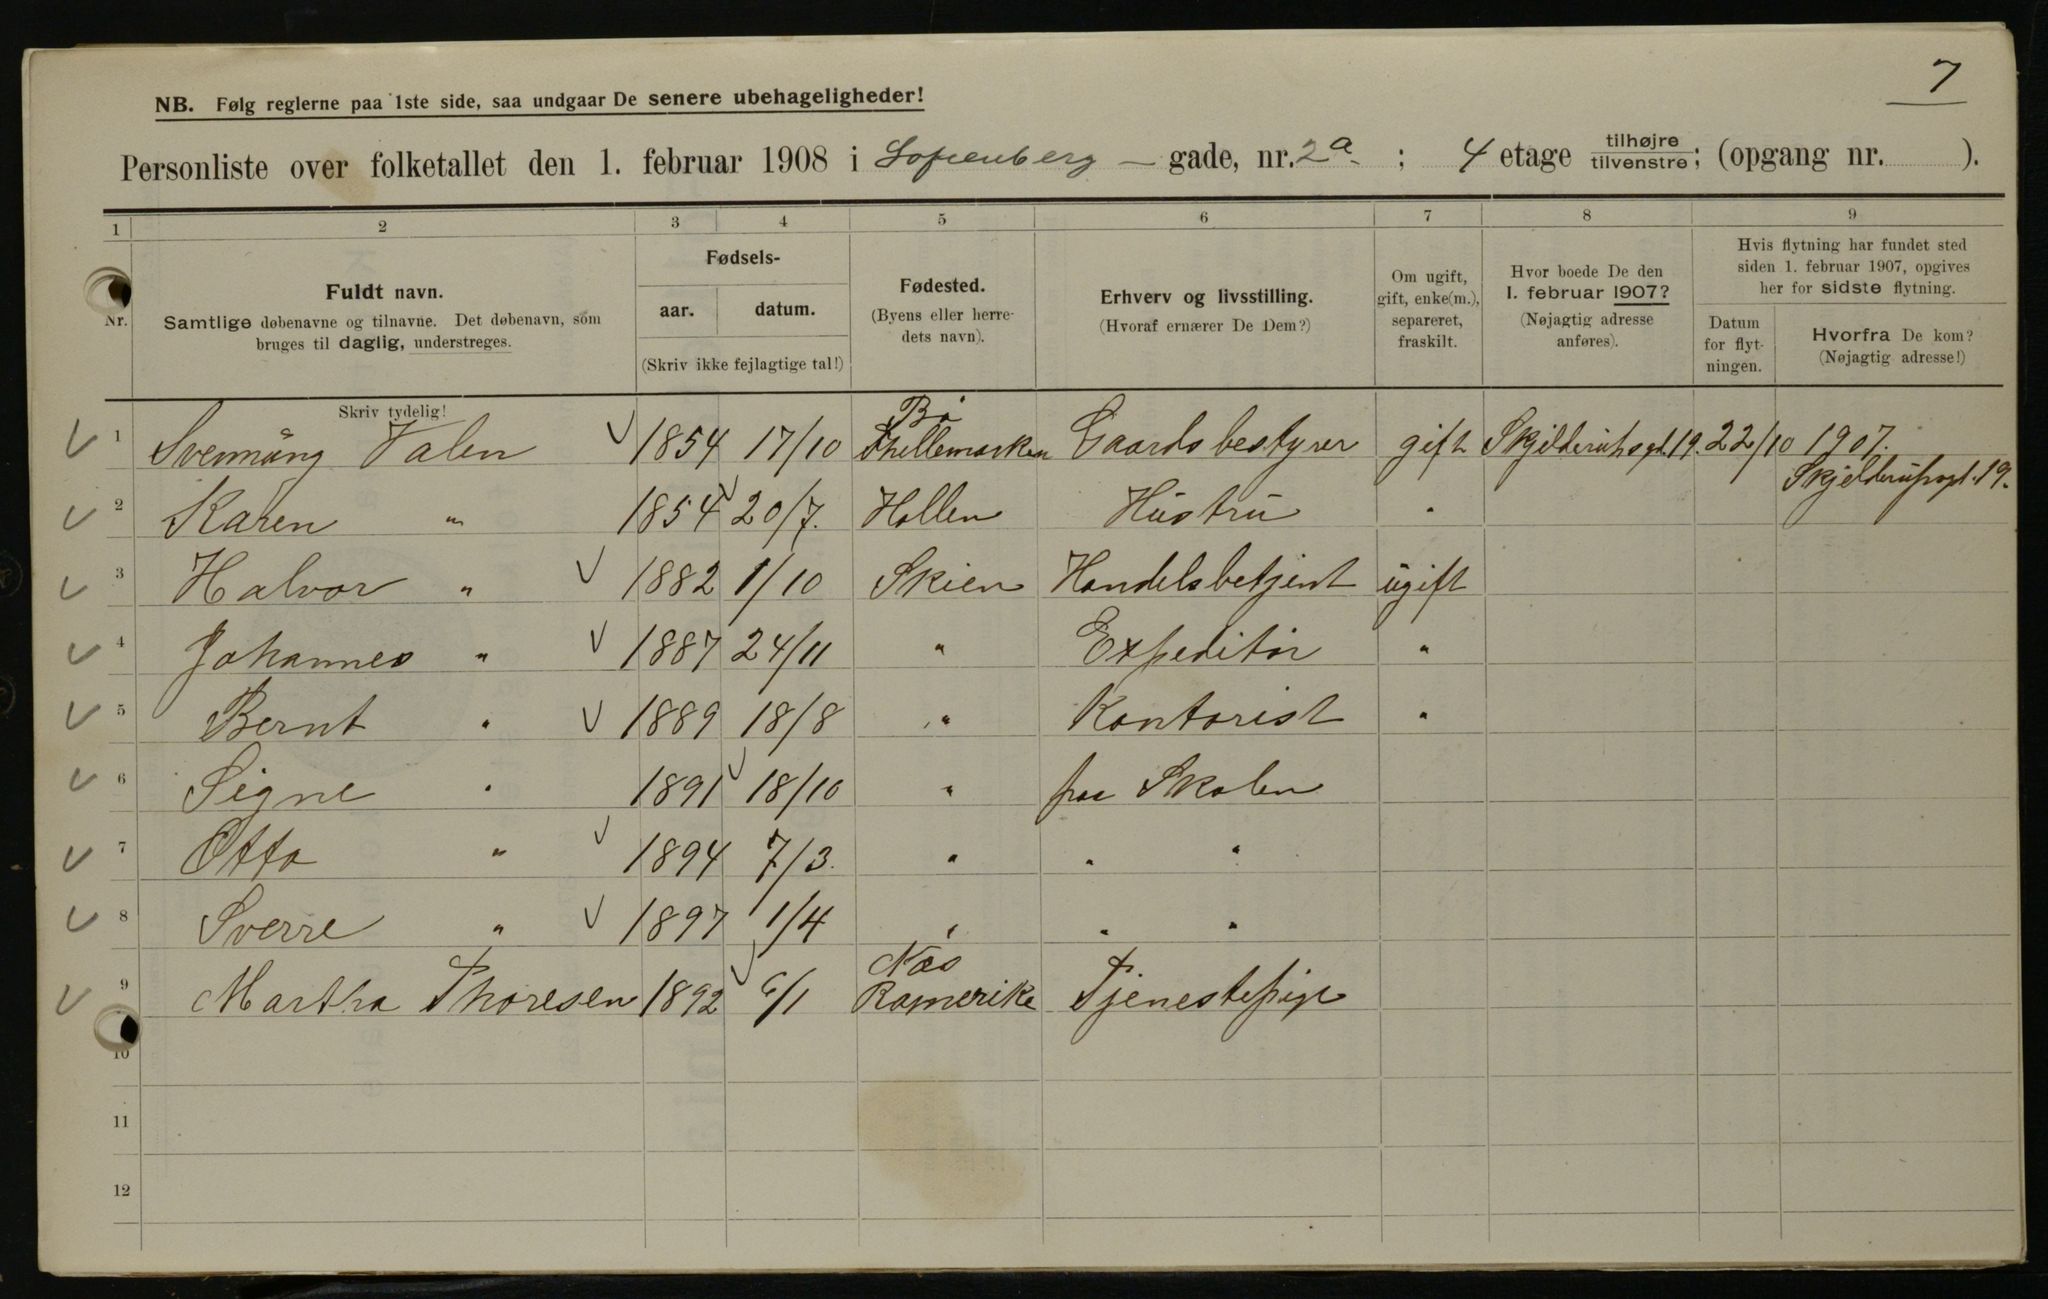 7
NB. Følg reglerne paa 1ste side, saa undgaar De senere ubehageligheder!
Personliste over folketallet den 1. februar 1908 i Sofienberg – gade, nr. 2a ; 4 etage tilhøjre tilvenstre; (opgang nr. ).
1 2 3 4 5 6 7 8 9
Nr.
Fuldt navn.
Samtlige døbenavne og tilnavne. Det døbenavn, som
bruges til daglig, understreges.
Fødsels-
aar. datum.
(Skriv ikke fejlagtige tal!)
Fødested.
(Byens eller herre-
dets navn).
Erhverv og livsstilling.
(Hvoraf ernærer De Dem?)
Om ugift,
gift, enke(m.),
separeret,
fraskilt.
Hvor boede De den
1. februar 1907?
(Nøjagtig adresse
anføres).
Hvis flytning har fundet sted
siden 1. februar 1907, opgives
her for sidste flytning.
Datum
for flyt-
ningen.
Hvorfra De kom?
(Nøjagtig adresse!)
Skriv tydelig!
1 Svennung Valen 1854 17/10 Bø Thellemarken Gaardsbestyrer gift Skjelderupsgd. 19. 22/10 1907. Skjelderupsgd. 19.
2 Karen " 1854 20/7. Hollen Hustru "
3 Halvor " 1882 1/10 Skien Handelsbetjent ugift
4 Johannes " 1887 24/11 " Expeditør "
5 Bernt " 1889 18/8 " Kontorist "
6 Signe " 1891 18/10 " paa Skolen
7 Otto " 1894 7/3. " " "
8 Sverre " 1897 1/4 " " "
9 Martha Thoresen 1892 6/1 Næs Romerike Tjenestepige
10
11
12